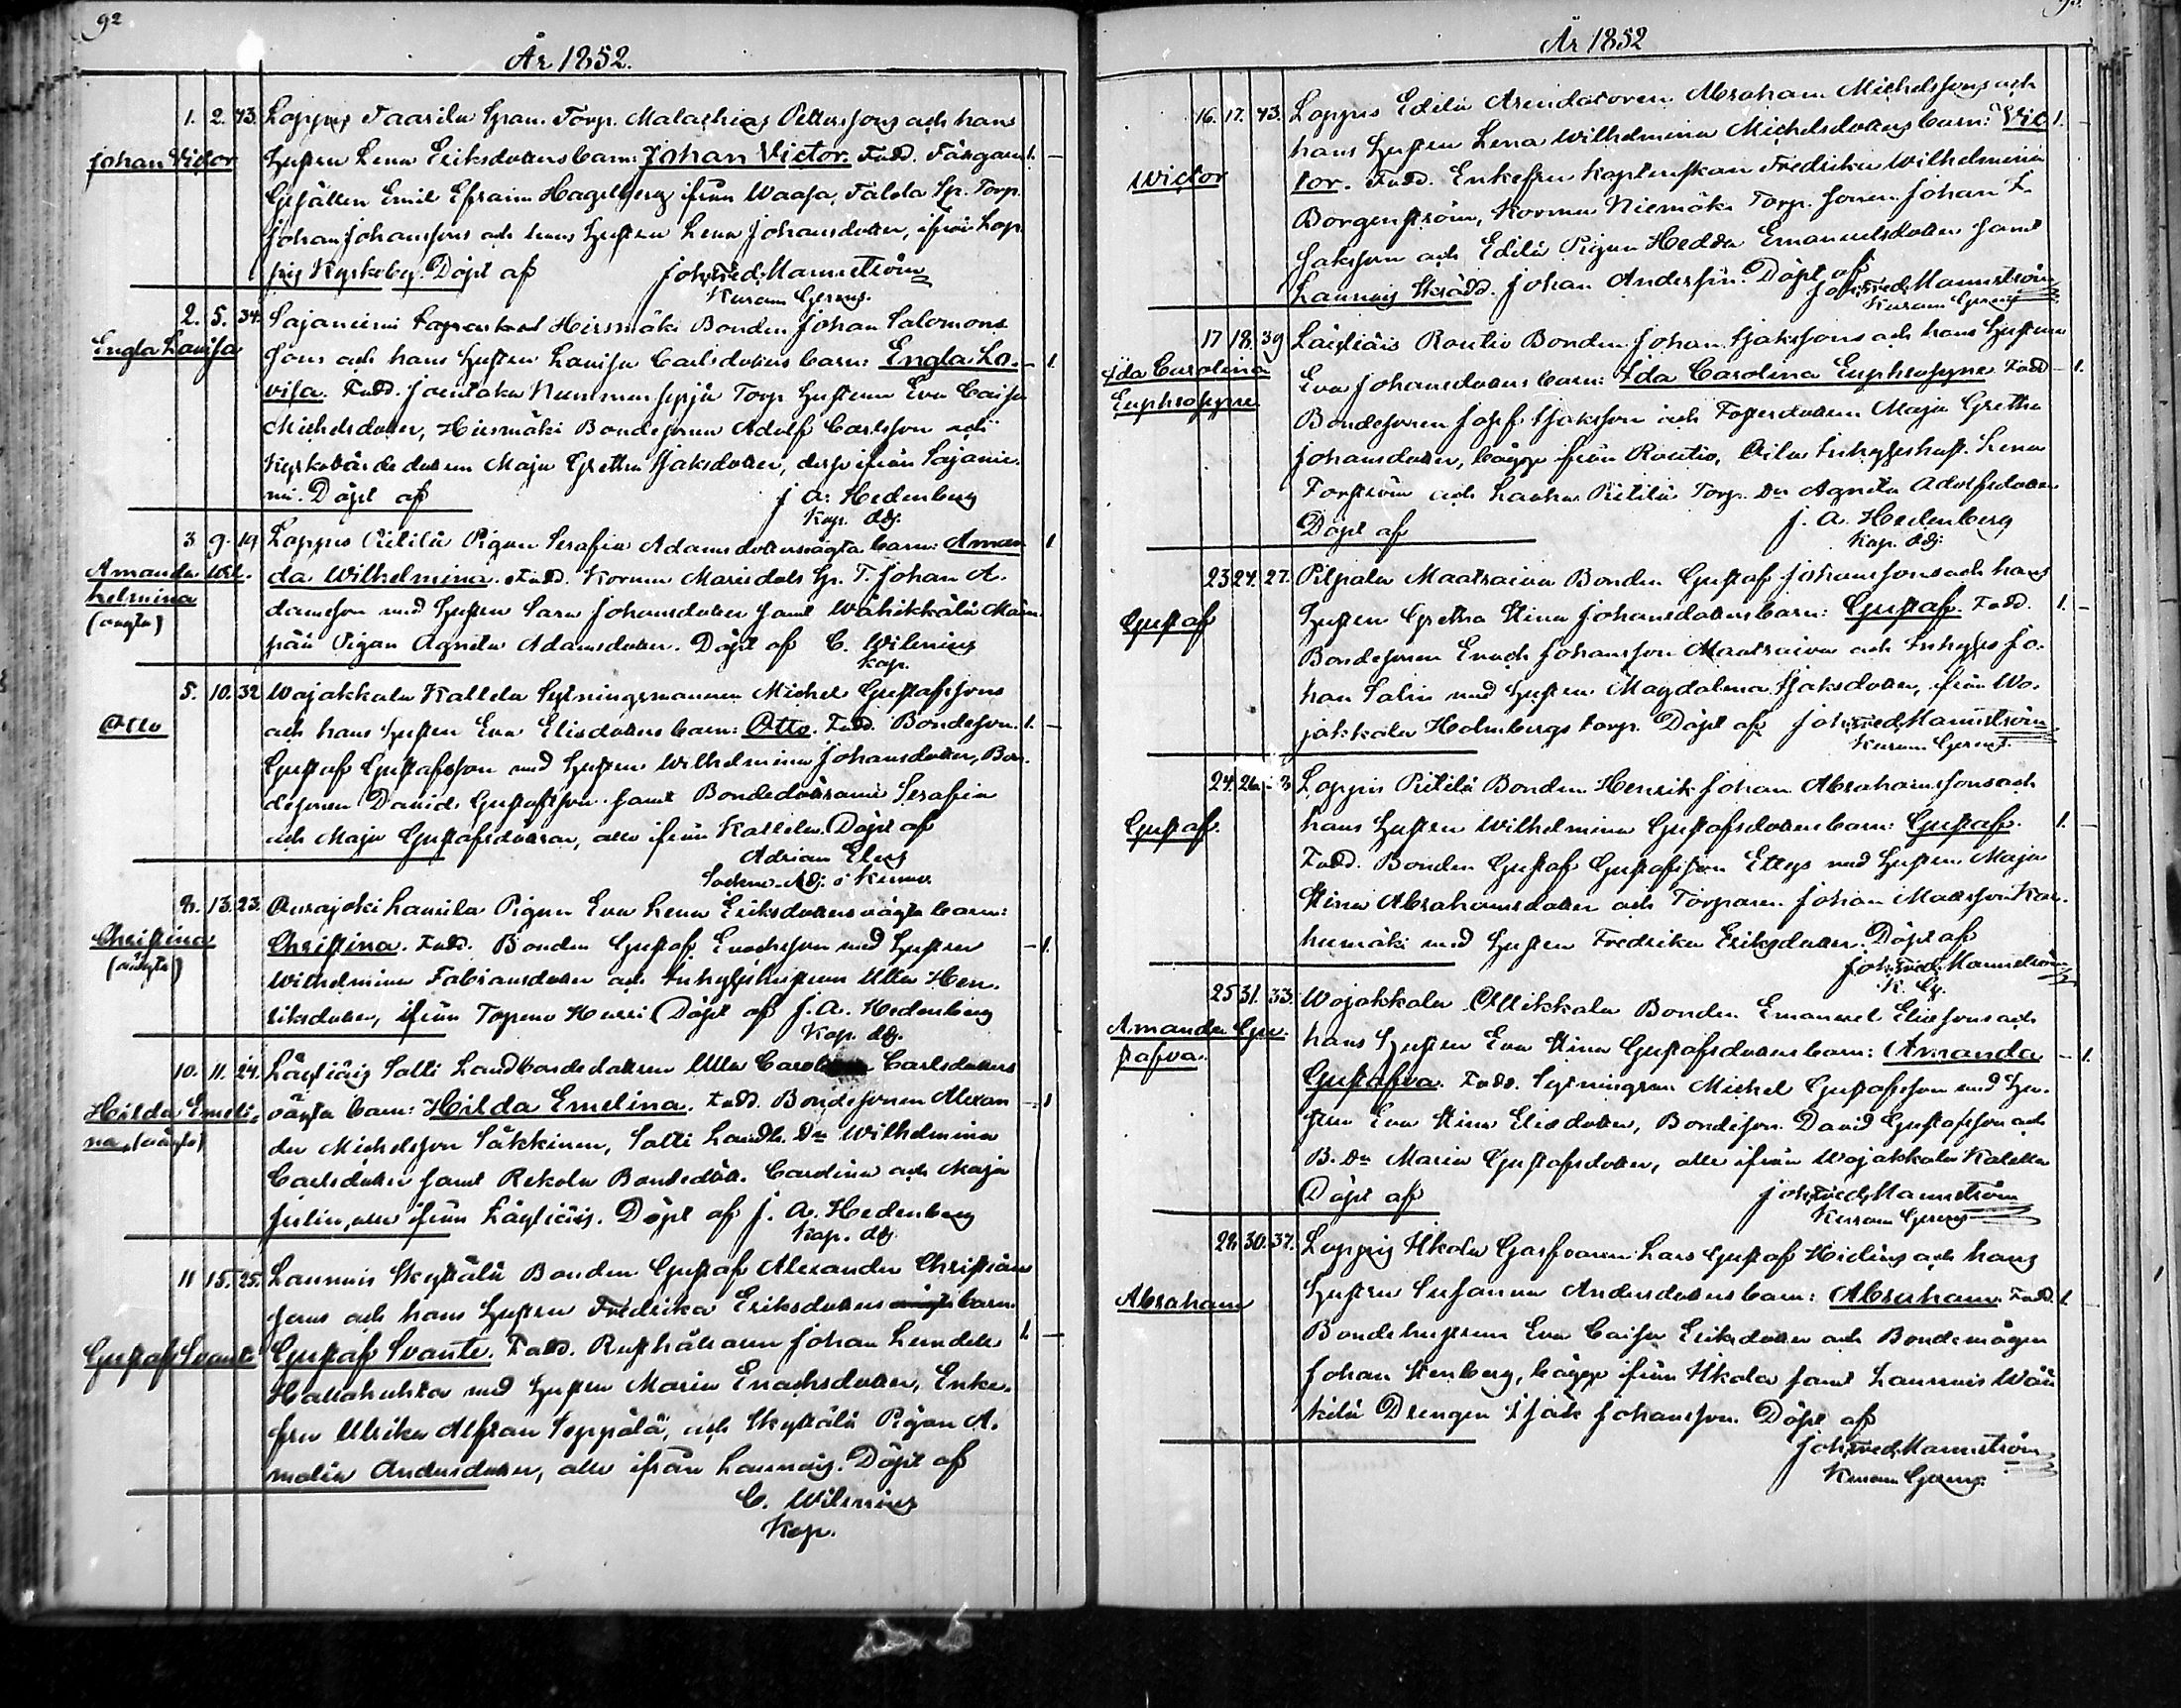 92
År 1852.
1. 2. 43. Loppis Taarila Span. Torp. Malachias Pettersons och hans
Johan Victor Hustru Lena Eriksdotters barn: Johan Victor. Fadd. Färgare 1. –
Gesällen Emil Efraim Hagelberg ifrån Waasa, Talola Sp. Torp.
Johan Johanssons och hans Hustru Lena Johansdotter, ifrån Lop-
pis Kyrkoby. Döpt af Joh. Fred. Mannström
Kuram Gerens.
2. 5. 34. Sajaniemi Hirsimäki Bonden Johan Salomons
Engla Lovisa sons och hans Hustru Lovisa Carlsdotters barn: Engla Lo- – 1.
visa. Fadd. Torp. Hustrun Eva Caisa
Michelsdotter, Hirsimäki Bondesonen Adolf Carlsson och
Kyrkovärde dottern Maja Gretha Isaksdotter, desse ifrån Sajanie-
mi. Döpt af J. A. Hedenberg
Kap. Adj.
3 9. 19 Loppis Pietilä Pigan Serafia Adamsdotters oägta barn: Aman 1
Amanda Wil- da Wilhelmina. Fadd. Kormu Mariedals Sp. T. Johan A-
helmina damsson med Hustru Sara Johansdotter samt Wähikkälä
(oägta) Pigan Agneta Adamsdotter. Döpt af C. Wilenius
Kap.
5. 10. 32 Wojakkala Kallela Sytningsmannen Michel Gustafssons
Otto och hans Hustru Eva Elisdotters barn: Otto. Fadd. Bondeson. 1. –
Gustaf Gustafsson med Hustru Wilhelmina Johansdotter, Bon-
desonen David Gustafsson samt Bondedöttrarne Serafia
och Maja Gustafsdöttrar, alla ifrån Kallela. Döpt af
Adrian Elers
Sockne-Adj. i
8. 13. 23. Launila Pigan Eva Lena Eriksdotters oägta barn:
Christina Christina. Fadd. Bonden Gustaf Enochsson med Hustru – 1.
(oägta) Wilhelmina Fabiansdotter och Inhyseshustrun Ulla Hen-
riksdotter, ifrån Topeno Döpt af J. A. Hedenberg
Kap. Adj.
10. 11. 24. Läyliäis Salli Landbondedottren Ulla Carolina Carlsdotters
Hilda Emeli- oägta barn: Hilda Emelina. Fadd. Bondesonen Alexan – 1
na, (oägta) der Michelsson Säkkinen, Salli Landb. Dr Wilhelmina
Carlsdotter samt Rekola Bondedött. Carolina och Maja
alla ifrån Läyliäis. Döpt af J. A. Hedenberg
Kap. Adj.
11 15. 25. Launois Skyttälä Bonden Gustaf Alexander Christians
sons och hans Hustru Fredrika Eriksdotters oägta barn
Gustaf Svante Gustaf Svante. Fadd. Rusthållaren Johan Lindell 1. –
med Hustru Maria Enochsdotter, Enke-
fru Ulrika Seppälä, och Skyttälä Pigan A-
malia Andersdotter, alla ifrån Launois. Döpt af
C. Wilenius
Kap.
93.
År 1852
16. 17. 43. Loppis Edilä Arendatoren Abraham Michelssons och
hans Hustru Lena Wilhelmina Michelsdotters barn: Vic 1. –
Wictor tor. Fadd. Enkefru Kaptenskan Fredrika Wilhelmina
Borgenström, Kormu Niemäki Torp. Sonen Johan I-
saksson och Edilä Pigan Hedda Emanuelsdotter samt
Launois Skrädd. Johan Andersin. Döpt af
Joh. Fred. Mannström
Kuram Gerens
17 18. 39 Läyliäis Routio Bonden Johan Isakssons och hans Hustrus
Ida Carolina Eva Johansdotters barn: Ida Carolina Euphrosyne Fadd – 1.
Euphrosyne Bondesonen Josef Isaksson och Fosterdottern Maja Gretha
Johansdotter, bägge ifrån Routio, Inhyseshust. Lena
Forström och Pietilä Torp. Dr Agneta Adolfsdotter
Döpt af J. A. Hedenberg
Kap. Adj.
23 24. 27. Pilpala Maatraiva Bonden Gustaf Johanssons och hans
Gustaf Hustru Gretha Stina Johansdotters barn: Gustaf. Fadd. 1. –
Bondesonen Enoch Johansson Maatraiva och Inhyses Jo-
han Salin med Hustru Magdalena Isaksdotter, ifrån Wo-
jakkala Holmbergs torp. Döpt af Joh. Fred. Mannström
Kuram Gerens.
24. 26. Loppis Pietilä Bonden Henrik Johan Abrahamssons och
Gustaf. hans Hustru Wilhelmina Gustafsdotters barn: Gustaf. 1. –
Fadd. Bonden Gustaf Gustafsson Ettys med Hustru Maja
Stina Abrahamsdotter och Torparen Johan Mattsson
med Hustru Fredrika Eriksdotter. Döpt af
Joh. Fred. Mannström
K. G.
25 31. 33. Wojakkala Ollikkala Bonden Emanuel Eliæsons och
Amanda Gu- hans Hustru Eva Stina Gustafsdotters barn: Amanda – 1.
stafva. Gustafva. Fadd. Sytningsm. Michel Gustafsson med Hu-
stru Eva Stina Elisdotter, Bondeson. David Gustafsson och
B. Dr Maria Gustafsdotter, alla ifrån Wojakkala Kalella
Döpt af Joh. Fred. Mannström
Kuram Gerens
28. 30. 37. Loppis Hkola Garfvaren Lars Gustaf Hidins och hans
Abraham Hustru Susanna Andersdotters barn: Abraham. Fadd. 1.
Bondehustrun Eva Caisa Eriksdotter och Bondemågen
Johan Stenberg, bägge ifrån Hkola samt Launois
Drengen Isak Johansson. Döpt af
Joh. Fred. Mannström
Kuram Gerens.